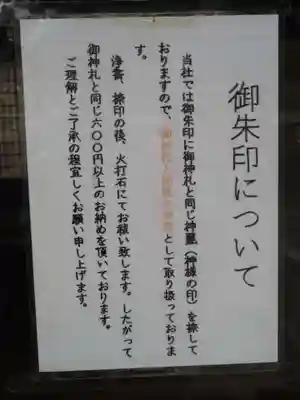 御朱印について
当社では御朱印に御神札と同じ神璽（神様の印）を捺して
おりますので、として取り扱っておりま
す。
浄書、捺印の後、火打石にてお祓い致します。したがって
御神札と同じ六〇〇円以上のお納めを頂いております。
ご理解とご了承の程宜しくお願い申し上げます。